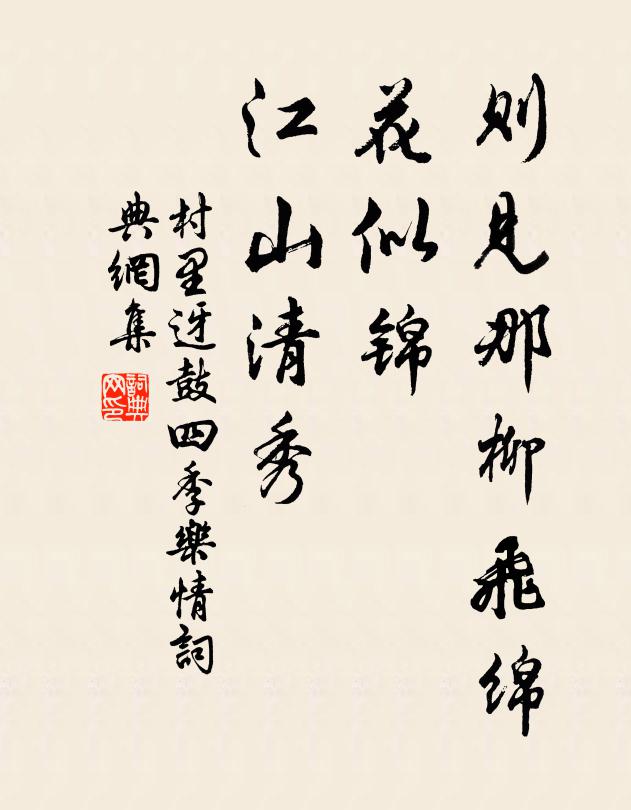 则见那柳飛绵
花似锦
江山清秀
村里迓鼓四季樂情詞
典網集
詞典
网印